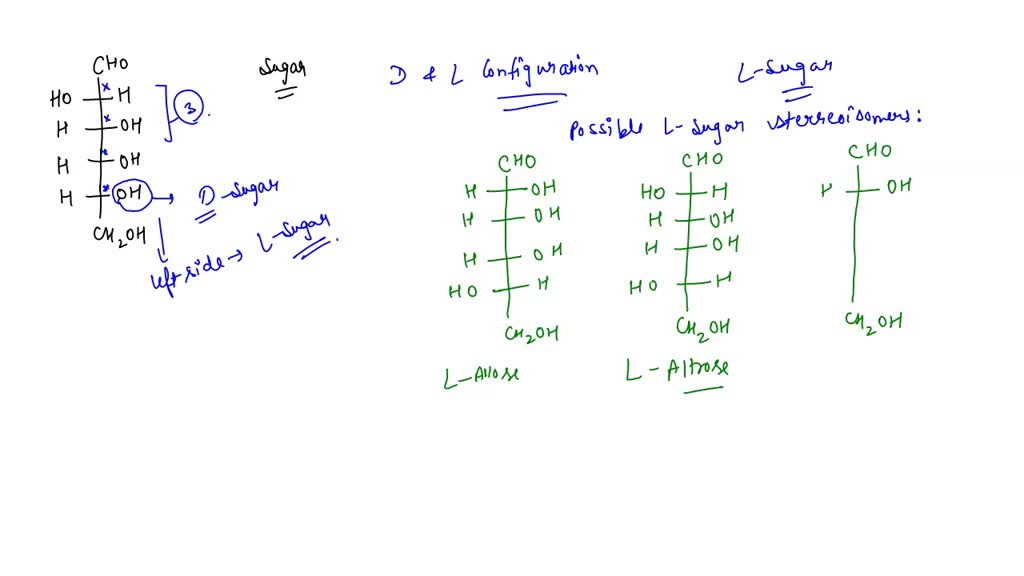 CHO
HO H
H OH
H OH
H OH
CH2OH
3.
Sugar
D - Sugar
left side → L-Sugar.
D & L Configuration
L-Sugar
Possible L-Sugar stereoisomers:
CHO
H OH
H OH
H OH
HO H
CH2OH
L-Allose
CHO
HO H
H OH
H OH
HO H
CH2OH
L-Altrose
CHO
H OH
CH2OH